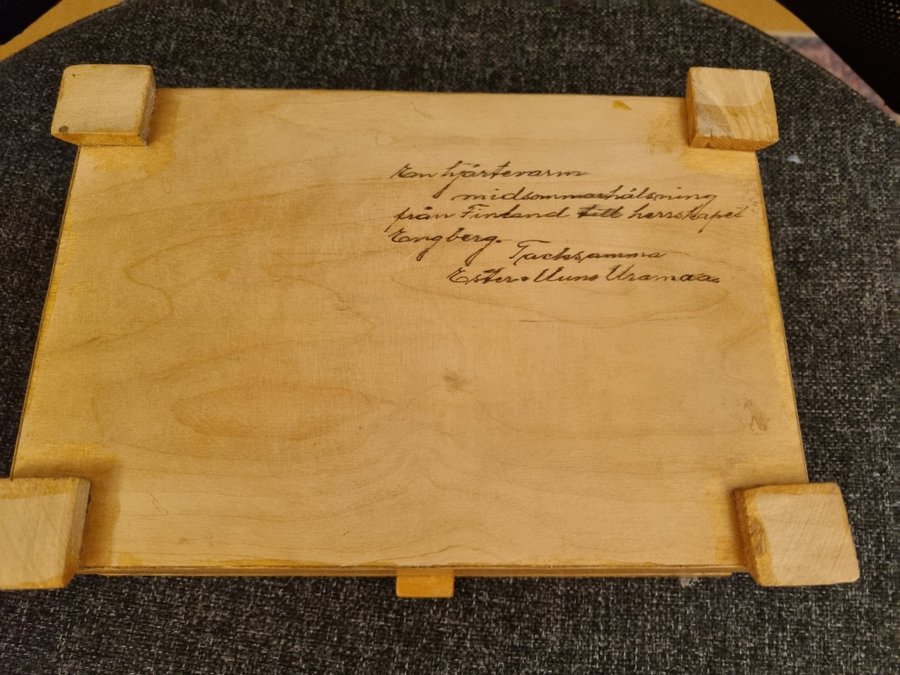 En hjärtevarm
midsommarhälsning
från Finland till herrskapet
Engberg.
Tacksamma
Ester o Uuno Uramaa